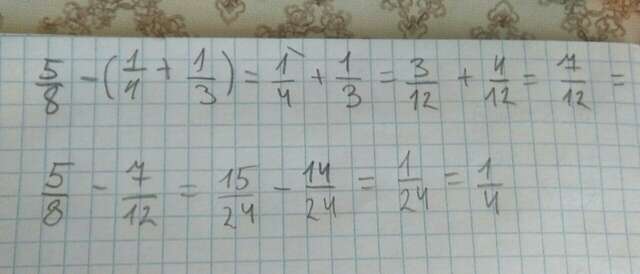 5/8 - (1/4 + 1/3) = 1/4 + 1/3 = 3/12 + 4/12 = 7/12 =
5/8 - 7/12 = 15/24 - 14/24 = 1/24 = 1/4